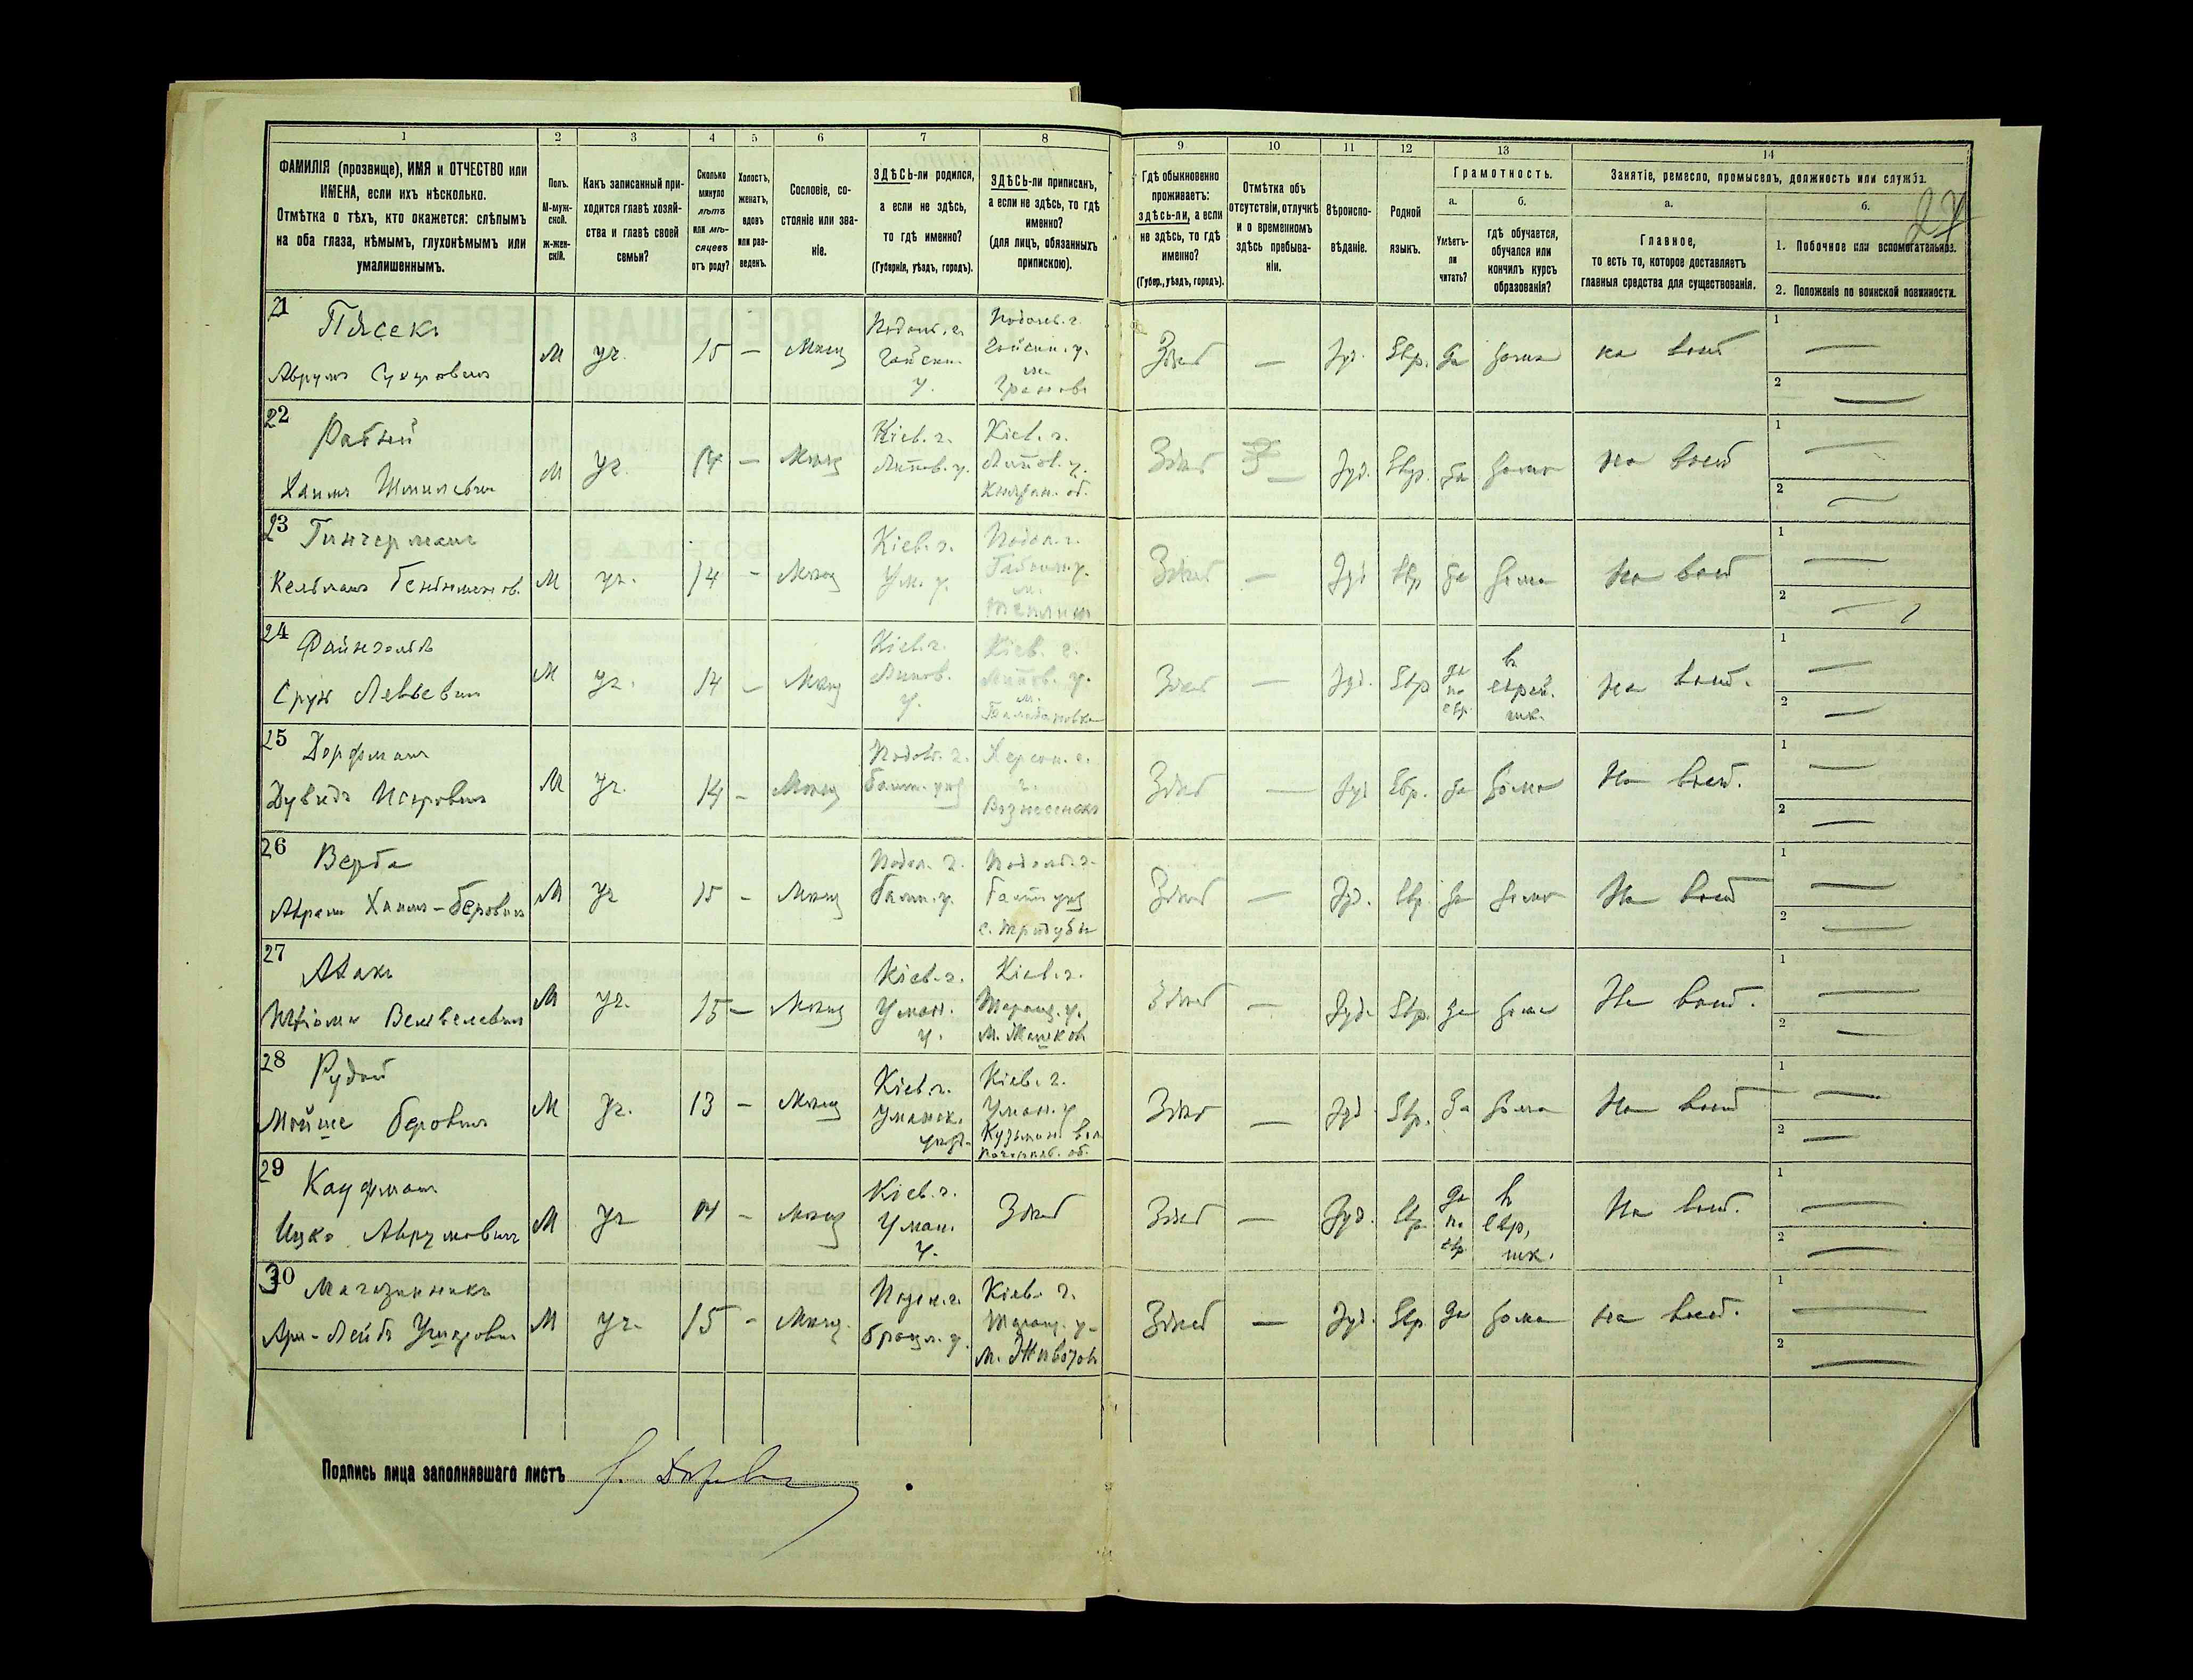 1 2 3 4 5 6 7 8 9 10 11 12 13 14
ФАМИЛІЯ (прозвище), ИМЯ и ОТЧЕСТВО или
ИМЕНА, если ихъ нѣсколько.
Отмѣтка о тѣхъ, кто окажется: слѣпымъ
на оба глаза, нѣмымъ, глухонѣмымъ или
умалишеннымъ.
Полъ.
М-муж-
ской.
ж-жен-
скій.
Какъ записанный при-
ходится главѣ хозяй-
ства и главѣ своей
семьи?
Сколько
минуло
лѣтъ
или мѣ-
сяцевъ
отъ роду?
Холостъ,
женатъ,
вдовъ
или раз-
веденъ.
Сословіе, со-
стояніе или зва-
ніе.
ЗДѢСЬ-ли родился,
а если не здѣсь,
то гдѣ именно?
(Губернія, уѣздъ, городъ).
ЗДѢСЬ-ли приписанъ,
а если не здѣсь, то гдѣ
именно?
(для лицъ, обязанныхъ
припискою).
Гдѣ обыкновенно
проживаетъ:
здѣсь-ли, а если
не здѣсь, то гдѣ
именно?
(Губер., уѣздъ, городъ).
Отмѣтка объ
отсутствіи, отлучкѣ
и о временномъ
здѣсь пребыва-
ніи.
Вѣроиспо-
вѣданіе.
Родной
языкъ.
Грамотность.
а.
Умѣетъ-
ли
читать?
б.
гдѣ обучается,
обучался или
кончилъ курсъ
образованія?
Занятіе, ремесло, промыселъ, должность или служба.
а.
Главное,
то есть то, которое доставляетъ
главныя средства для существованія.
б.
1. Побочное или вспомогательное.
2. Положеніе по воинской повинности.
27
21 Пясекъ
Аврумъ
М уч. 15 — Мѣщ
Подольс. г.
Гайсин.
у.
Подольс. г.
Гайсин. у.
м.
Грановъ
Здѣсь — Іуд. Евр. да дома на восп
1
2
22
Хаимъ Шмилевичъ
М уч. 14 — Мѣщ
Кіев. г.
Липов. у.
Кіев. г.
Липов. у.
Здѣсь — Іуд. Евр. да дома на восп
1
2
23
Кельманъ
М уч. 14 - Мѣщ
Кіев. г.
Ум. у.
Подол. г.
м.
Здѣсь — Іуд Евр да дома на восп
1
2
24 Файнгольдъ
Срул Левьевичъ
М уч. 14 - Мѣщ
Кіев. г.
Липов.
у.
Кіев. г.
Липов. у.
м.
Здѣсь — Іуд. Евр да
по
евр.
въ
еврей.
шк.
на восп.
1
2
25 Дорфманъ
Дувидъ
М уч. 14 - Мѣщ
Подол. г.
Балт. уѣз
Херсон. г.
г.
Вознесенскъ
Здѣсь — Іуд Евр. да дома на восп.
1
2
26 Верба
Аврам Хаимъ-Беровичъ
М уч 15 - Мѣщ
Подол. г.
Балт. у.
Подольс. г.
Балт. уѣз
с. Тридубы
Здѣсь — Іуд. Евр. да дома на восп
1
2
27
М уч. 15 — Мѣщ
Кіев. г.
Уман.
у.
Кіев. г.
Таращ. у.
м. Жашков
Здѣсь — Іуд. Евр. да дома на восп.
1
2
28 Рудой
Мойше Беровичъ
М уч. 13 — Мѣщ
Кіев. г.
Уманск.
уѣзд.
Кіев. г.
Уман. у
Здѣсь — Іуд Евр. да дома на восп
1
2
29 Кауфманъ
Ицко Аврумовичъ
М уч 14 - Мѣщ
Кіев. г.
Уман.
у.
Здѣсь
Здѣсь — Іуд. Евр. да
по
евр
въ
евр.
шк.
на восп.
1
2
30 Магазинникъ
М уч. 15 - Мѣщ.
Подол. г.
Брацл. у.
Кіев. г.
Таращ. у.
м. Животов
Здѣсь — Іуд. Евр да дома на восп.
1
2
Подпись лица заполнявшаго листъ